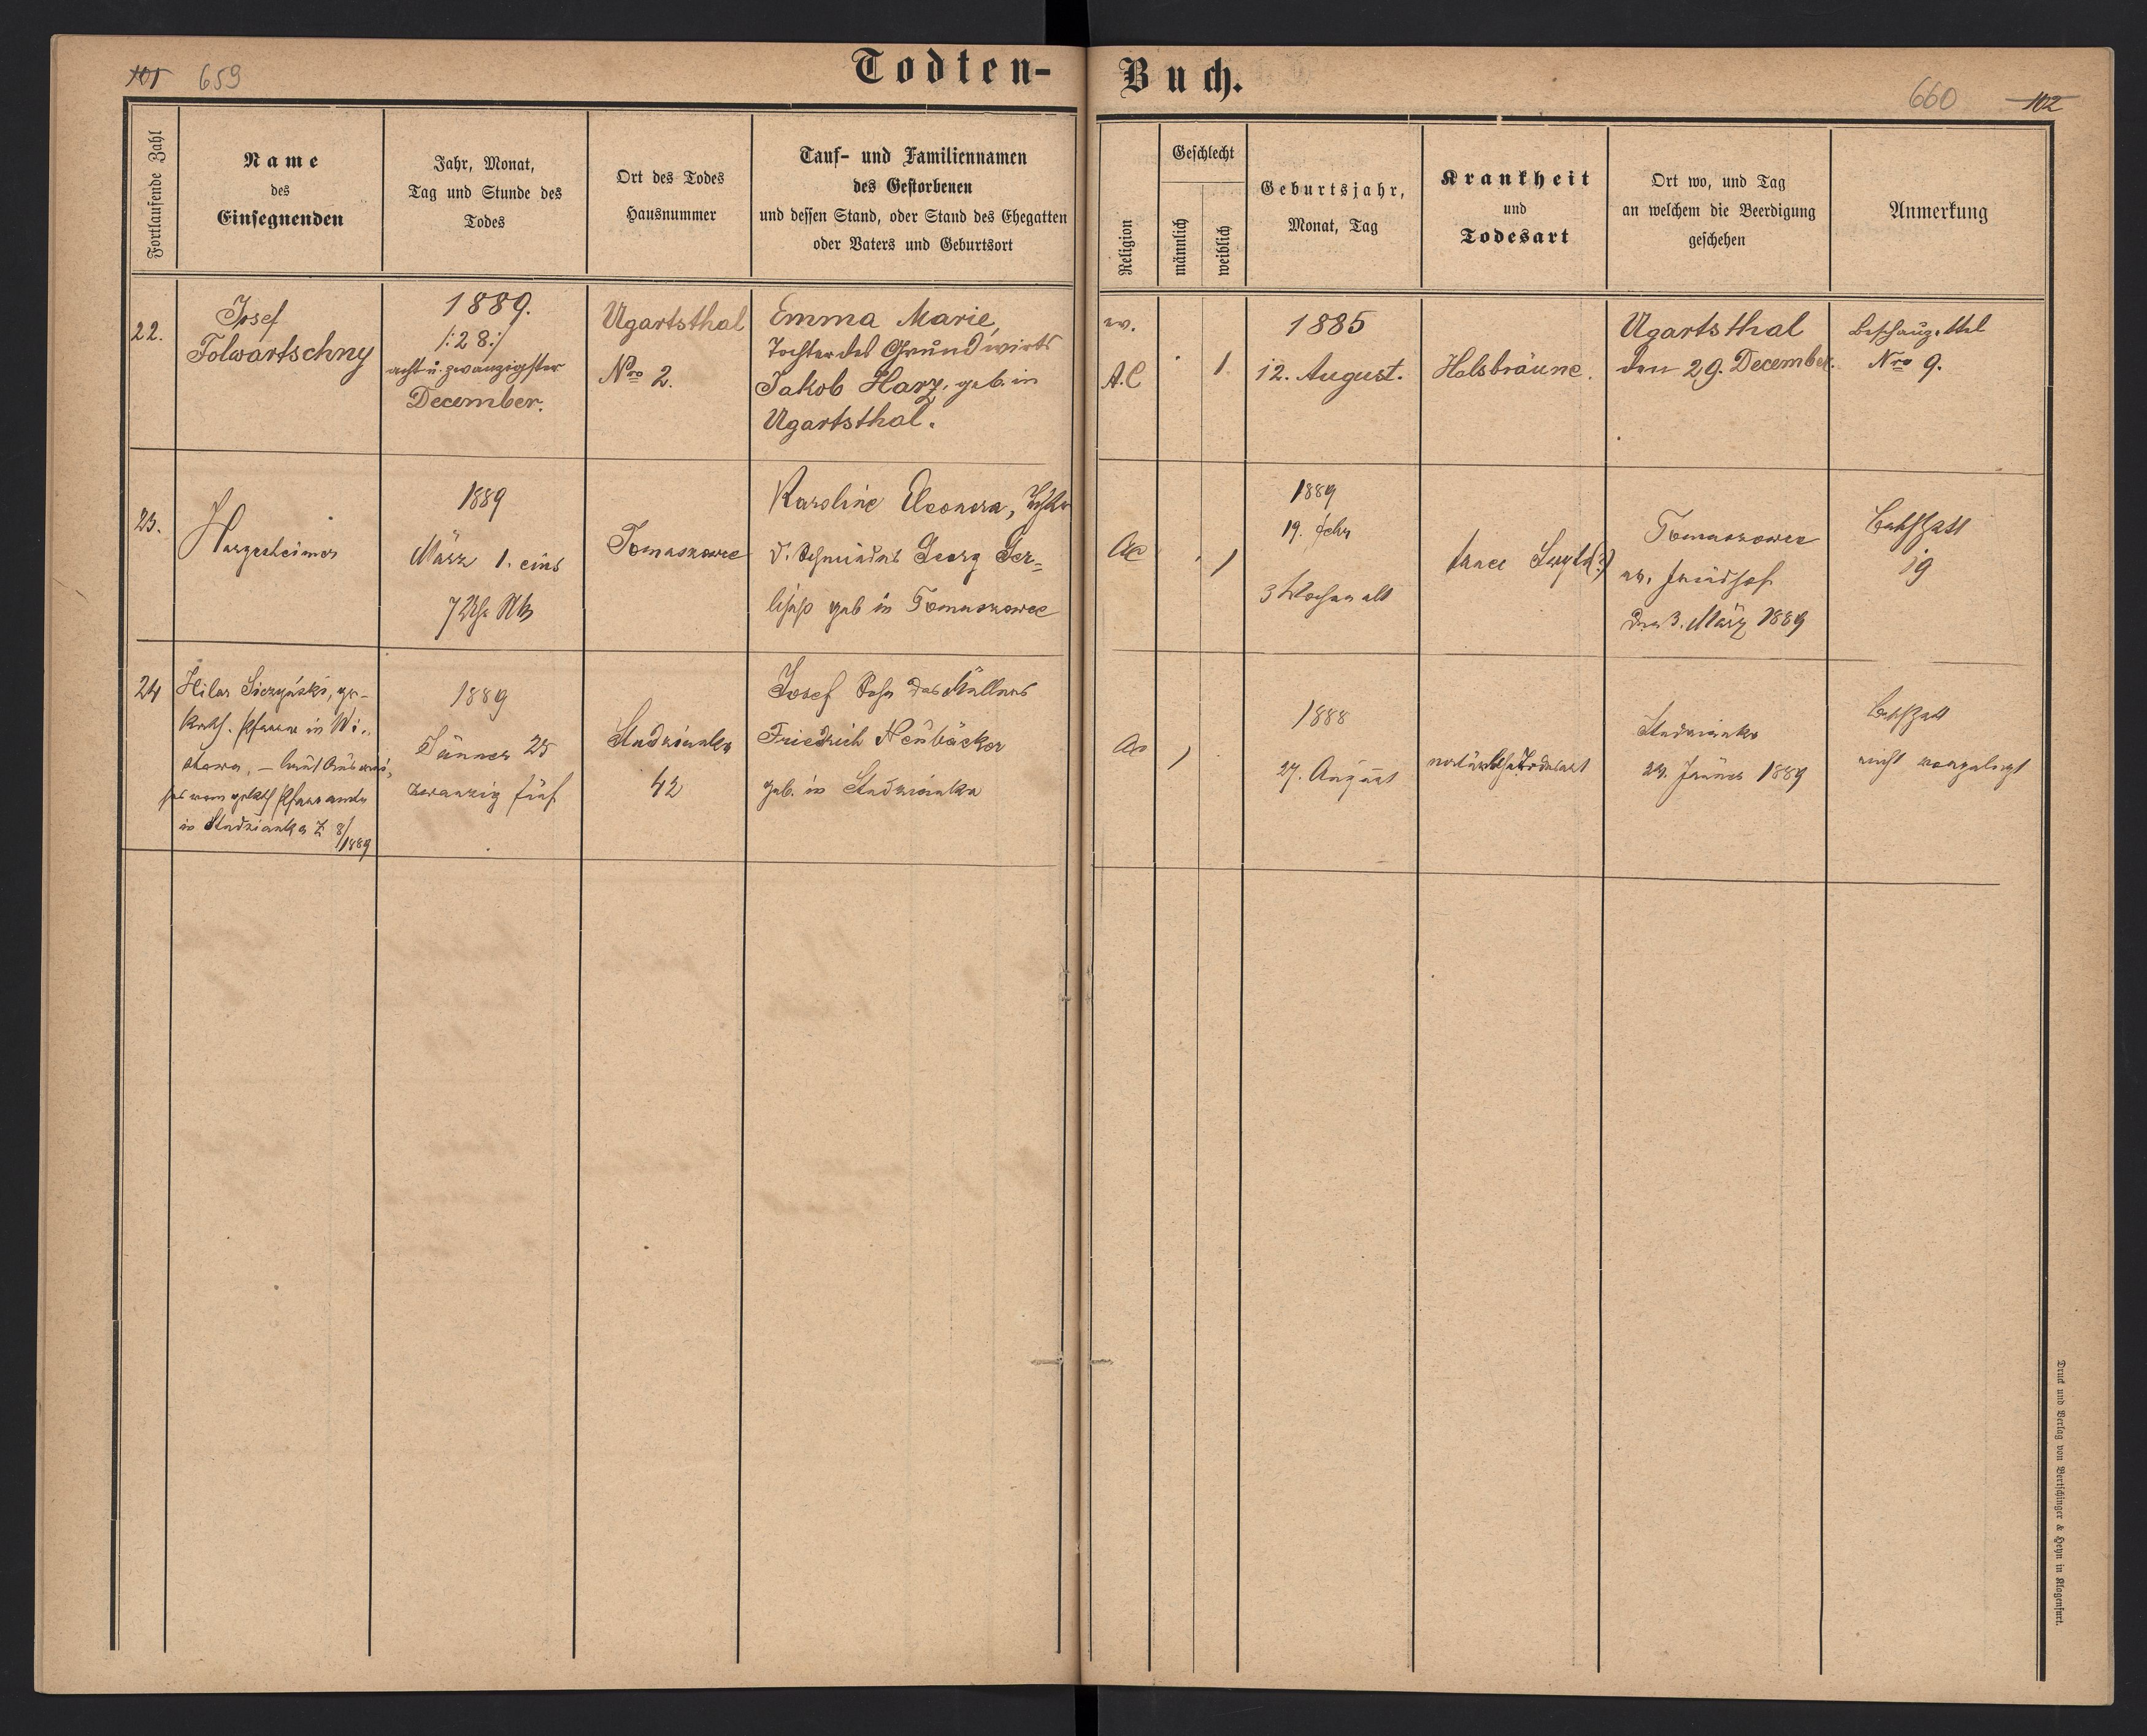 Todten-Buch.
101 659
660 102
Fortlaufende Zahl
Name
des
Einsegnenden
Jahr, Monat,
Tag und Stunde des
Todes
Ort des Todes
Hausnummer
Tauf- und Familiennamen
des Gestorbenen
und dessen Stand, oder Stand des Ehegatten
oder Vaters und Geburtsort
Religion
Geschlecht
männlich
weiblich
Geburtsjahr,
Monat, Tag
Krankheit
und
Todesart
Ort wo, und Tag
an welchem die Beerdigung
geschehen
Anmerkung
22.
Josef
Folwartschny
1889.
/:28:/
acht u. zwanzigster
December.
Ugartsthal
Nro 2.
Emma Marie,
Tochter des Grundwirts
Jakob Harz, geb. in
Ugartsthal.
ev.
A.C
1.
1885
12. August.
Halsbräune.
Ugartsthal
den 29. December.
Beschauzettel
Nro 9.
23.
Hargesheimer
1889
März 1. eins
7 Uhr
Tomaszowce
Karoline Eleonora, Tochter
d. Schmiedes Georg
geb in Tomaszowce
AC
1
1889
19. Febr
3 Wochen alt
Tomaszowce
ev. Friedhof
den 3. März 1889
19
24
Hilar Siczyński, gr-
kath. Pfarrer in Wi-
stowa, – laut
vom gr kath Pfarramte
in Studzianka Z 8/1889
1889
Jänner 25
zwanzig fünf
Studzianka
42
Josef Sohn des Müllers
Friedrich Neubäcker
geb. in Studzianka
AC
1
1888
27. August
natürliche Todesart
Studzianka
Jänner 1889
nicht vorgelegt
Druck und Verlag von Bertschinger & Heyn in Klagenfurt.